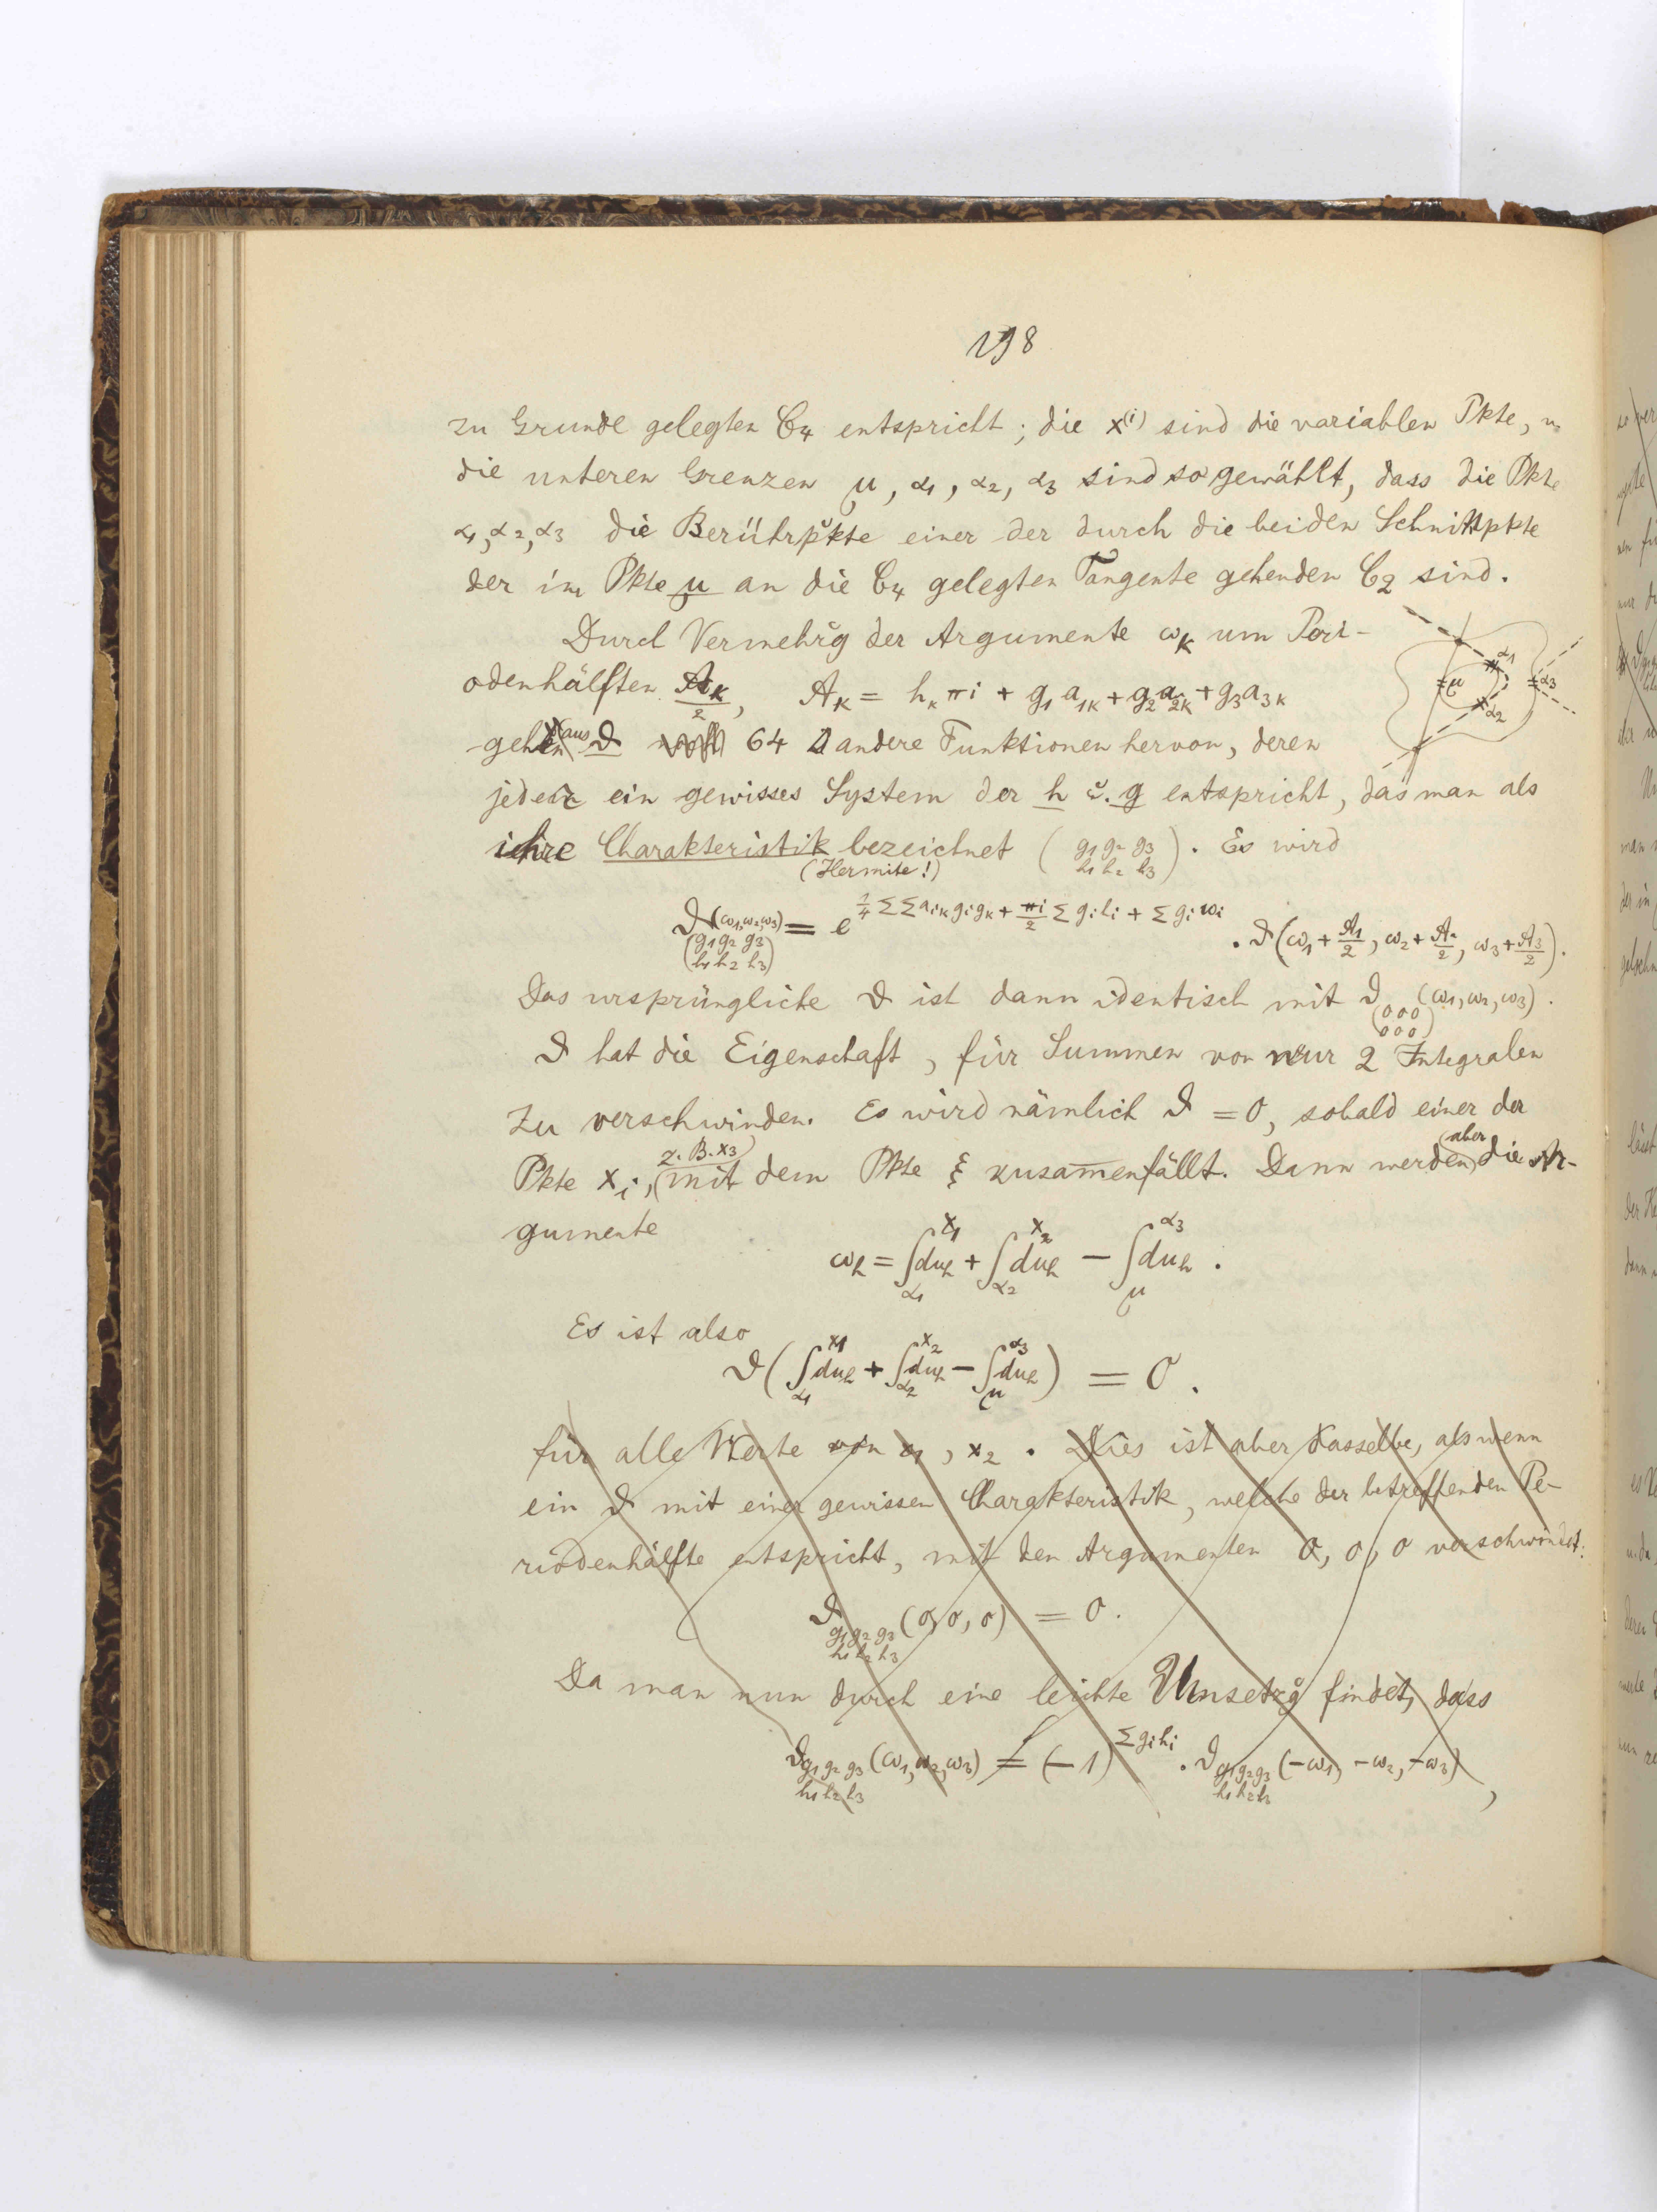 198
zu Grunde gelegten C₄ entspricht; die x⁽ⁱ⁾ sind die variablen Pkte, u.
die unteren Grenzen μ, α₁, α₂, α₃ sind so gewählt, dass die Pkte
α₁, α₂, α₃ die Berührpkte einer der durch die beiden Schnittpkte
der im Pkte μ an die C₄ gelegten Tangente gehenden C₂ sind.
Durch Vermehrg der Argumente ω_k um Peri-
odenhälften A_k/2, A_k = h_k πi + g₁a₁ₖ + g₂a₂ₖ + g₃a₃ₖ
gehen aus ϑ 64 andere Funktionen hervor, deren
jeder ein gewisses System der h u. g entspricht, das man als
ihre Charakteristik bezeichnet (g₁ g₂ g₃ / h₁ h₂ h₃). Es wird
(Hermite!)
ϑ(ω₁,ω₂,ω₃) (g₁ g₂ g₃ / h₁ h₂ h₃) = e^{¼ ΣΣ a_ik g_i g_k + πi/2 Σ g_i h_i + Σ g_i ω_i} · ϑ(ω₁ + A₁/2, ω₂ + A₂/2, ω₃ + A₃/2).
Das ursprüngliche ϑ ist dann identisch mit ϑ(000 / 000) (ω₁, ω₂, ω₃).
ϑ hat die Eigenschaft, für Summen von nur 2 Integralen
zu verschwinden. Es wird nämlich ϑ = 0, sobald einer der
Pkte x_i, z. B. x₃ mit dem Pkte ξ zusam̅enfällt. Dann werden aber die Ar-
gumente
ω_h = ∫_{α₁}^{x₁} du_h + ∫_{α₂}^{x₂} du_h − ∫_μ^{α₃} du_h.
Es ist also
ϑ(∫_{α₁}^{x₁} du_h + ∫_{α₂}^{x₂} du_h − ∫_μ^{α₃} du_h) = 0.
für alle Werte von x₁, x₂. Dies ist aber dasselbe, als wenn
ein ϑ mit einer gewissen Charakteristik, welche der betreffenden Pe-
riodenhälfte entspricht, mit den Argumenten 0, 0, 0 verschwindet:
ϑ g₁ g₂ g₃ / h₁ h₂ h₃ (0, 0, 0) = 0.
Da man nun durch eine leichte Umsetzg findet, dass
ϑ g₁ g₂ g₃ / h₁ h₂ h₃ (ω₁, ω₂, ω₃) = (−1)^{Σ g_i h_i} · ϑ g₁ g₂ g₃ / h₁ h₂ h₃ (−ω₁, −ω₂, −ω₃),
α₁
μ
α₃
α₂